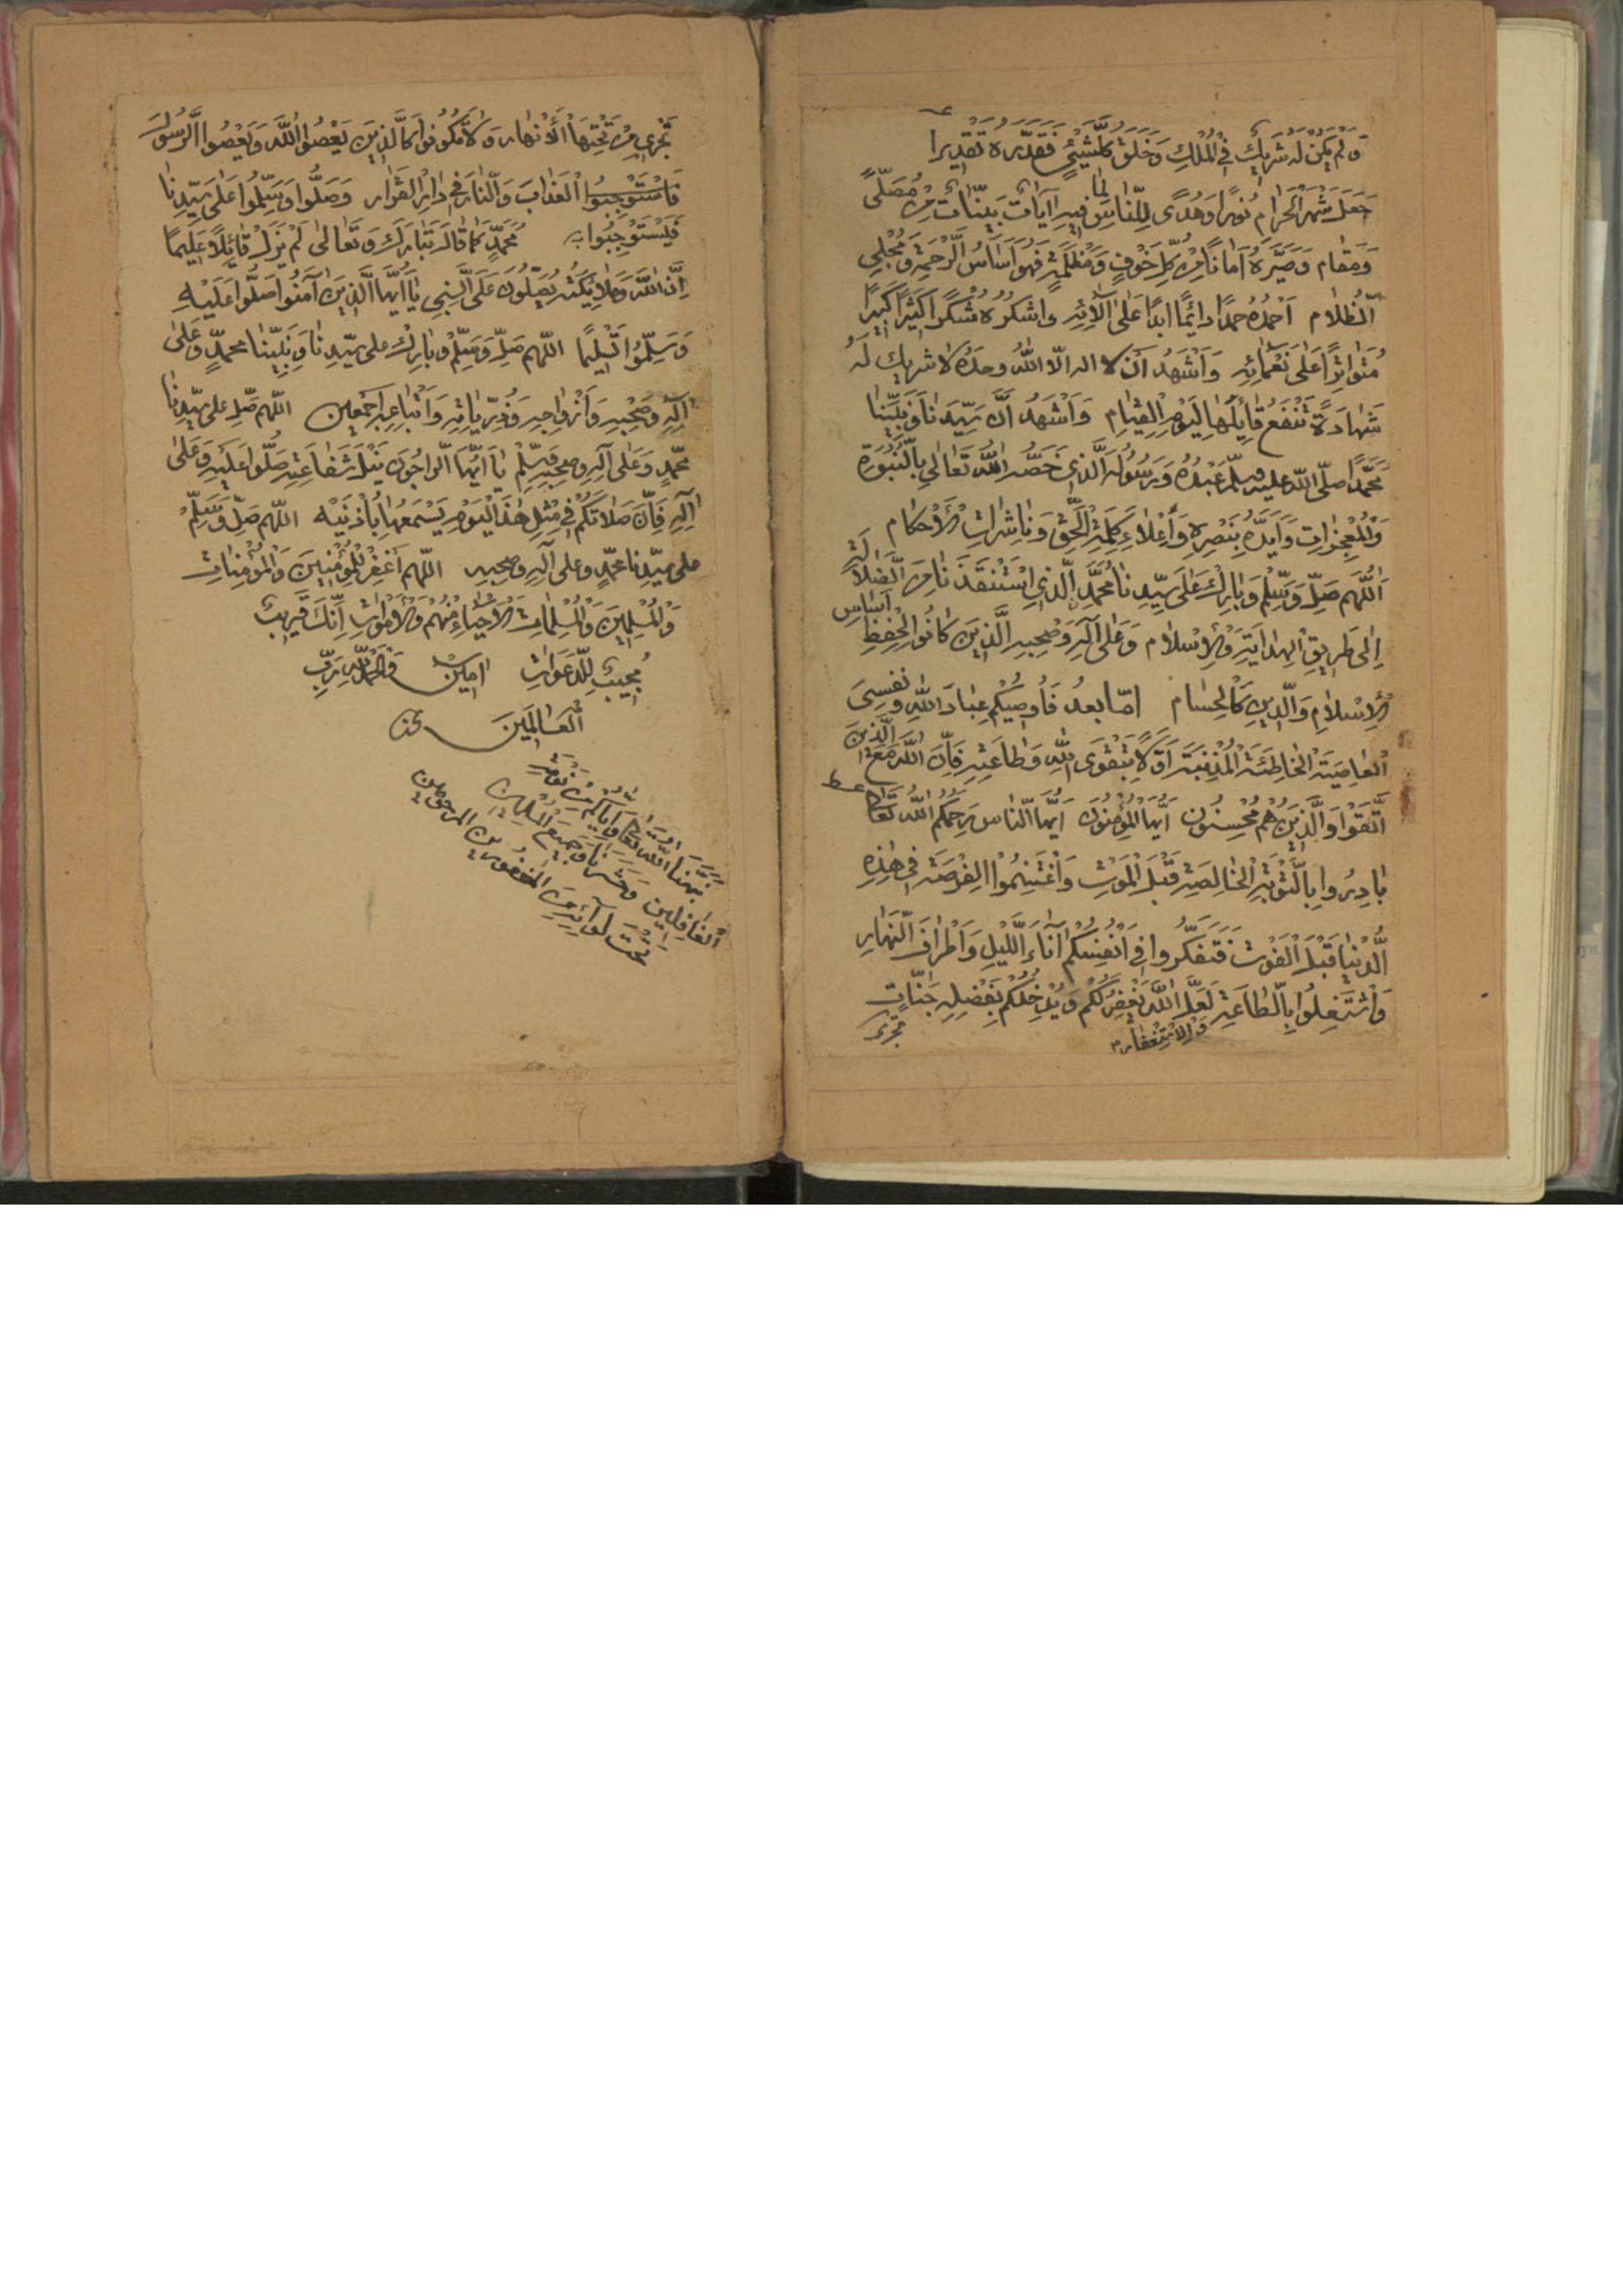 وَلَمْ يَكُنْ لَهُ شَرِيكٌ فِي الْمُلْكِ وَخَلَقَ كُلَّ شَيْئٍ فَقَدَّرَهُ تَقْدِيرًا
جَعَلَ شَهْرَ الْحَرَامِ نُورًا وَهُدًى لِلنَّاسِ فِيهِ آيَاتٌ بَيِّنَاتٌ مِنْ مُصَلًّى
وَمَقَامٍ وَصَيَّرَهُ اَمَانًا مِنْ كُلِّ خَوْفٍ وَمَظْلَمَةٍ فَهُوَ اَسَاسُ الرَّحْمَةِ وَمُجْلِي
الظَّلَامِ اَحْمَدُهُ حَمْدًا دَائِمًا اَبَدًا عَلَى آلَائِهِ وَاشْكُرُهُ شُكْرًا كَثِيرًا كَبِيرًا
مُتَوَاتِرًا عَلَى نَعْمَائِهِ وَاَشْهَدُ اَنْ لا اله الّا اللهُ وحدهُ لا شريك لَهُ
شَهَادَةً تَنْفَعُ قَايِلَهَا لِيَوْمِ الْقِيَامِ وَاَشْهَدُ اَنَّ سَيِّدَنَا وَنَبِيَّنَا
مُحَمَّدًا صلّى اللّه عليه وسلّم عَبْدُهُ وَرَسُولُهُ الَّذِي خَصَّهُ اللهُ تَعَالَى بِالنُّبُوَّةِ
وَالْمُعْجِزَاتِ وَاَيَّدَهُ بِنَصْرِهِ وَاَعْلَاءِ كَلِمَةِ الْحَقِّ وَنَاشِرَاتِ الْاَحْكَامِ
اَللّٰهُمَّ صَلِّ وَسَلِّمْ وَبَارِكْ عَلَى سَيِّدِنَا مُحَمَّدٍ الَّذِي اسْتَنْقَذَنَا مِنَ الضَّلَالَةِ
اِلَى طَرِيقِ الْهِدَايَةِ وَالْاِسْلَامِ وَعَلَى آلِهِ وَصَحْبِهِ الَّذِينَ كَانُوا لِحِفْظِ اَسَاسِ
الْاِسْلَامِ وَالدِّينِ كَالْحِسَامِ امّا بعدُ فَاُوصِيكُمْ عِبَادَ اللهِ وَنَفْسِيَ
الْعَاصِيَةَ الْخَاطِئَةَ الْمُذْنِبَةَ اَوَّلًا بِتَقْوَى اللهِ وَطَاعَتِهِ فَاِنَّ اللهَ مَعَ الَّذِينَ
اتَّقَوْا وَالَّذِينَ هُمْ مُحْسِنُونَ اَيُّهَا الْمُؤْمِنُونَ اَيُّهَا النَّاسُ رَحِمَكُمُ اللهُ تَعَالَى
بَادِرُوا بِالتَّوْبَةِ الْخَالِصَةِ قَبْلَ الْمَوْتِ وَاغْتَنِمُوا الْفُرْصَةَ فِي هٰذِهِ
الدُّنْيَا قَبْلَ الْفَوْتِ فَتَفَكَّرُوا فِي اَنْفُسِكُمْ آنَاءَ اللَّيْلِ وَاَطْرَافَ النَّهَارِ
وَاشْتَغِلُوا بِالطَّاعَةِ لَعَلَّ اللهَ يَغْفِرُ لَكُمْ وَيُدْخِلُكُمْ بِفَضْلِهِ جَنَّاتٍ
وَالْاِسْتِغْفَارِ
تجري
تَجْرِي مِنْ تَحْتِهَا الْاَنْهَار وَلَا تَكُونُوا كَالَّذِينَ يَعْصُوا اللهَ وَيَعْصُوا الرَّسُولَ
فَاسْتَوْجِبُوا الْعَذَابَ وَالنَّارَ فِي دَارِ الْقَرَار وَصَلُّوا وَسَلِّمُوا عَلَى سَيِّدِنَا
فَيَسْتَوْجِبُوا بِهِ مُحَمَّدٍ كَمَا قَالَ تَبَارَكَ وَتَعَالَى لَمْ يَزَلْ قَائِلًا عَلِيمًا
اِنَّ اللهَ وَمَلَائِكَتَهُ يُصَلُّونَ عَلَى النَّبِي يَا اَيُّهَا الَّذِينَ آمَنُوا صَلُّوا عَلَيْهِ
وَسَلِّمُوا تَسْلِيمًا اللّهم صَلِّ وَسَلِّمْ وَبَارِكْ على سَيِّدِنَا وَنَبِيِّنَا محمدٍ وَعَلَى
آلِهِ وَصَحْبِهِ وَاَزْوَاجِهِ وَذُرِّيَاتِهِ وَاَتْبَاعِهِ اَجْمَعِين اللّهم صَلِّ على سَيِّدِنَا
مُحَمَّدٍ وَعَلَى آلِهِ وصحبه وَسَلِّمْ يَا اَيُّهَا الرَّاجُونَ نَيْلَ شَفَاعَتِهِ صَلُّوا عَلَيْهِ وَعَلَى
آلِهِ فَاِنَّ صَلَاتَكُمْ فِي مِثْلِ هٰذَا الْيَوْمِ يَسْمَعُهَا بِاُذْنَيْهِ اللّهم صَلِّ وَسَلِّمْ
على سَيِّدنا محمّدٍ وعلى آلِهِ وصحبِهِ اللّهم اَغْفِرْ لِلْمُؤْمِنِينَ وَالْمُؤْمِنَاتِ
وَالْمُسْلِمِينَ وَالْمُسْلِمَاتِ الْاَحْيَاءِ مِنْهُمْ وَالْاَمْوَاتِ اِنَّكَ قَرِيبٌ
مُجِيبٌ لِلدَّعَوَاتِ امين وَالْحَمْدُ لِلهِ رَبِّ
الْعَالَمِينَ
نَبَّهَنَا اللهُ تَعَالَى وَاِيَّاكُمْ مِنْ
الْغَافِلِين وَحَشَرَنَا وَجَمِيعَ الْمُسْلِمِين
تَحْتَ